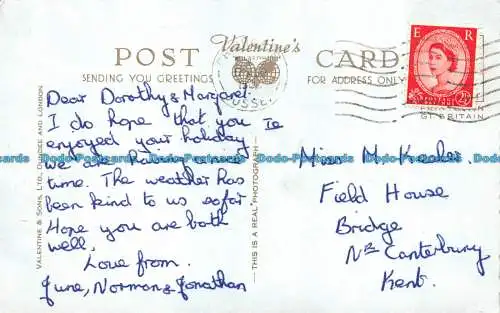 POST Valentine's CARD
SENDING YOU GREETINGS
FOR ADDRESS ONLY
E R
2½
GT. BRITAIN
Dear Dorothy & Margaret
I do hope that you
enjoyed your holiday
we are having a
time. The weather has
been kind to us so far
Hope you are both
well,
Love from
June, Norman & Jonathan
Miss M
Field House
Bridge
Nr Canterbury
Kent.
VALENTINE & SONS, LTD. DUNDEE AND LONDON
THIS IS A REAL PHOTOGRAPH
Dodo-Postcards